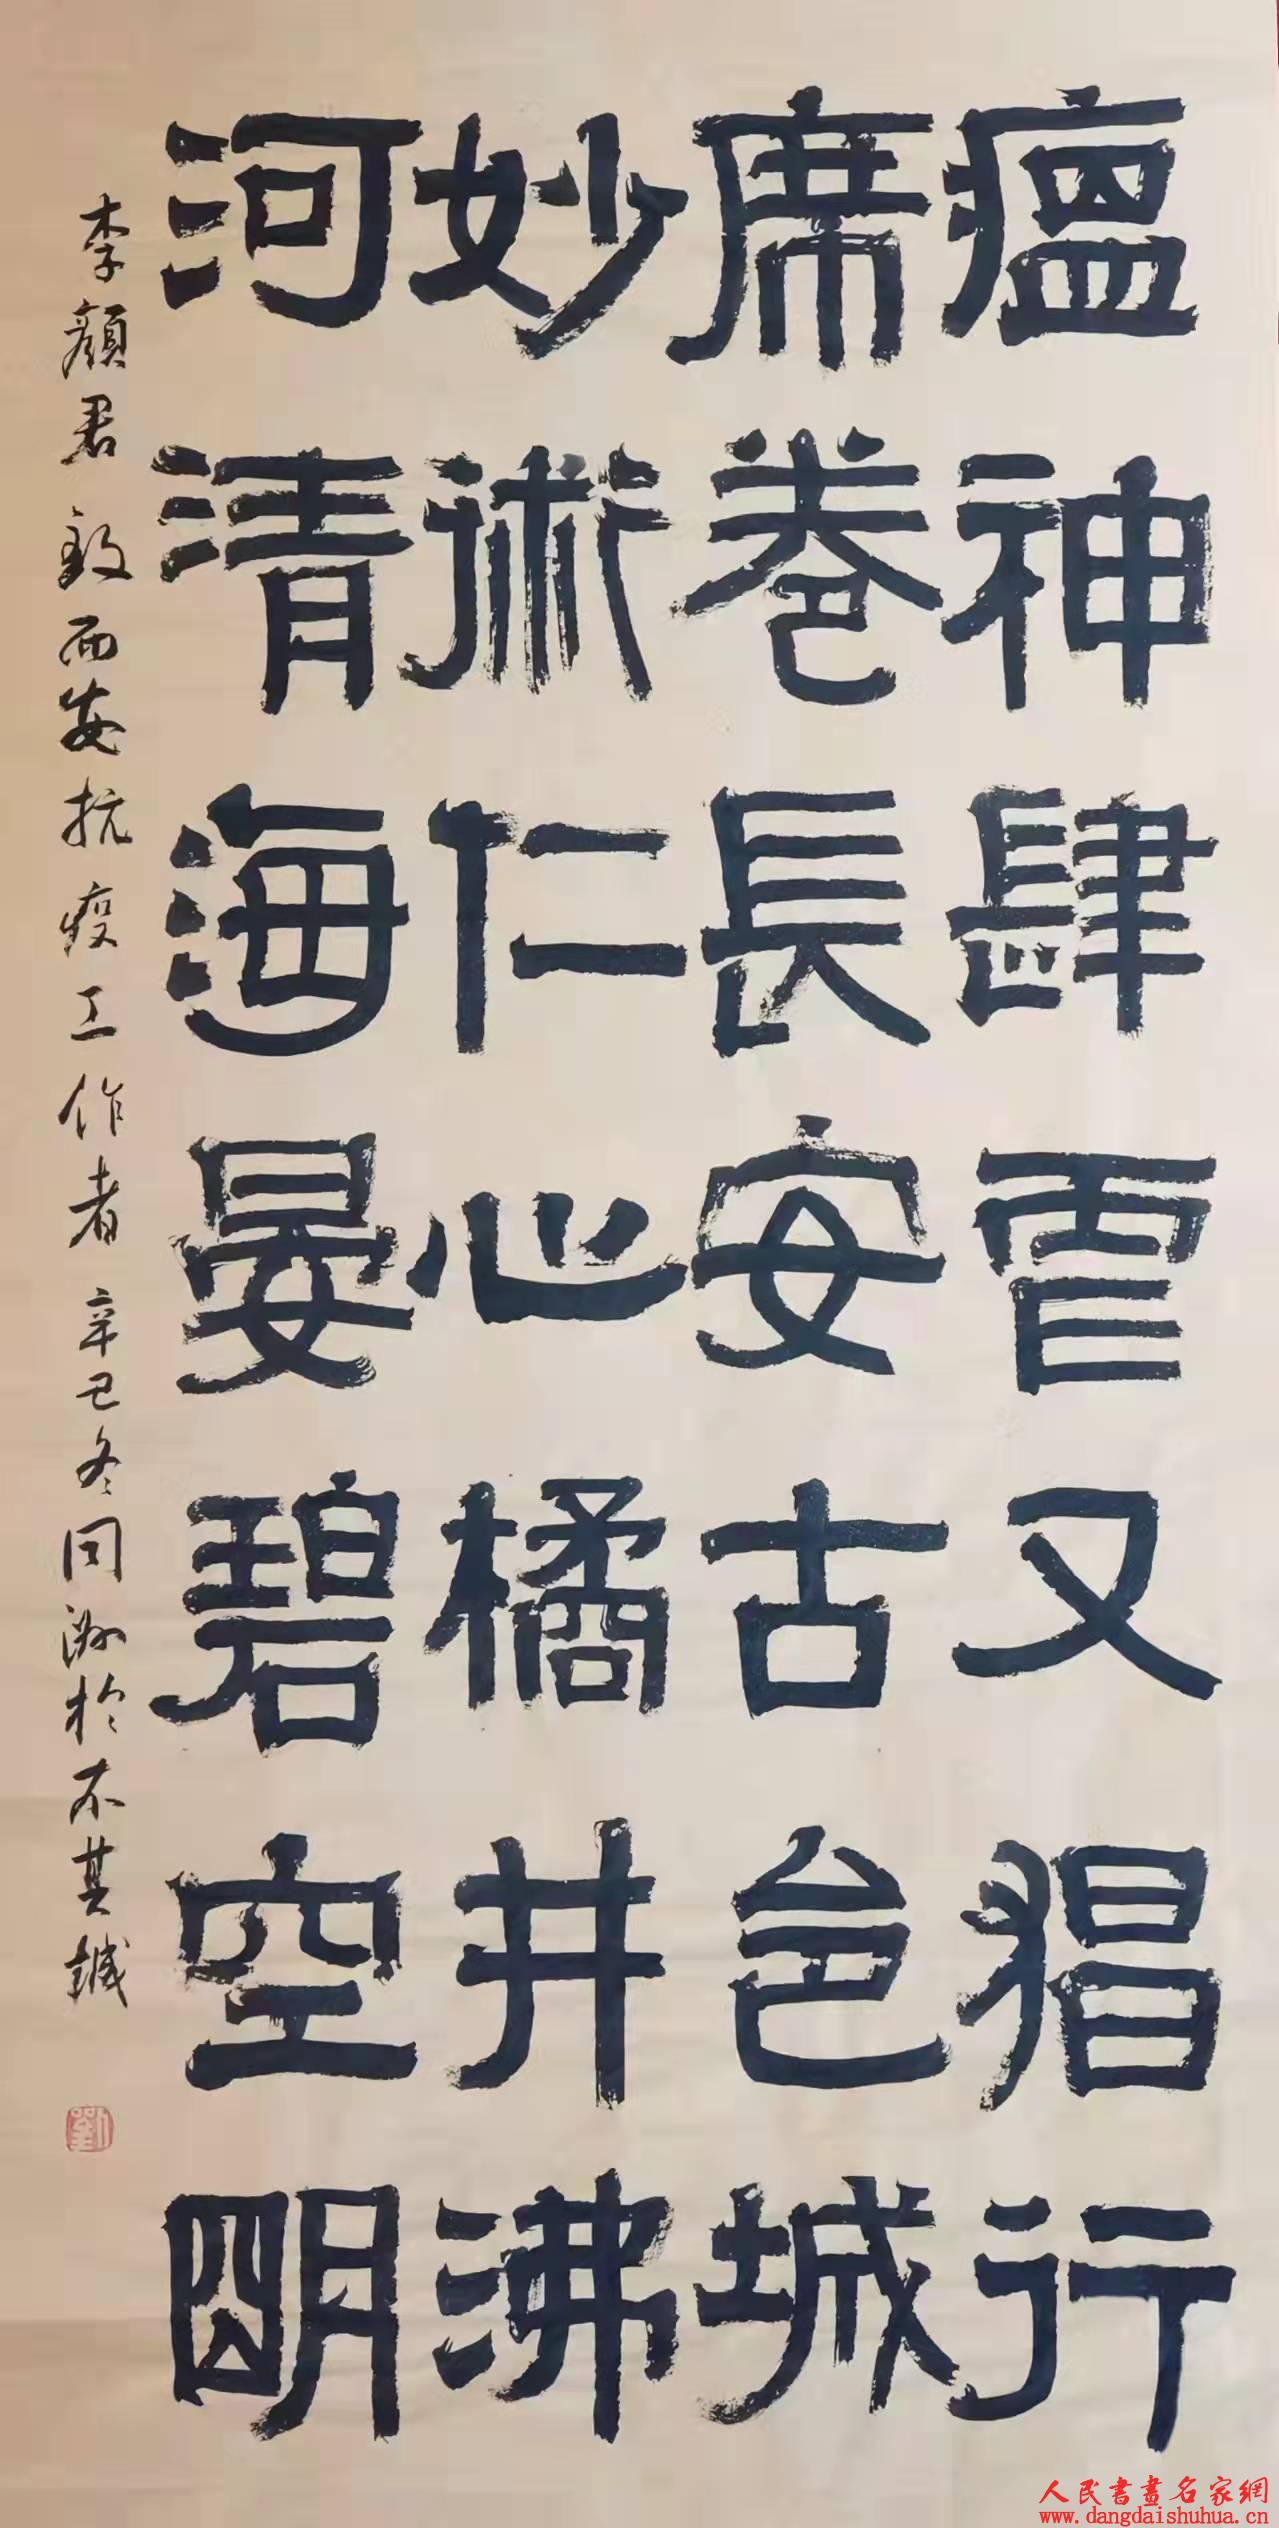 瘟神肆虐又猖行
席卷長安古邑城
妙術仁心橘井沸
河清海晏碧空明
李顏君致西安抗疫工作者 辛丑冬同洲於不其城
劉
人民書畫名家網
www.dangdaishuhua.cn